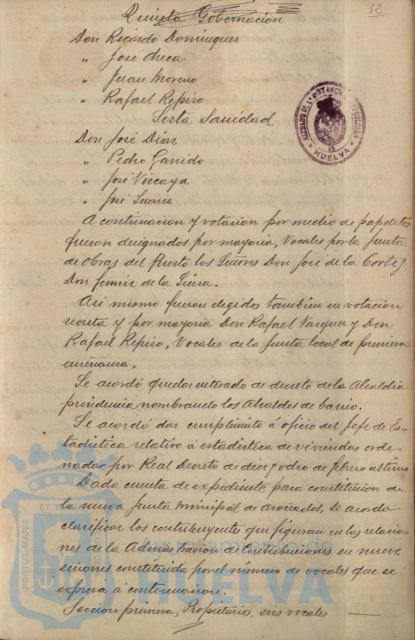 52
Quinta Gobernacion
Don Ricardo Dominguez
" José Checa
" Juan Moreno
" Rafael Repiso
Sexta Sanidad
Don José Diaz
" Pedro Garrido
" José Vizcaya
" José Suarez
A continuacion y votacion por medio de papeletas
fueron designados por mayoria, Vocales por la Junta
de Obras del Puerto los Señores Don José de la Corte y
Don Fermin de la Sierra.
Asi mismo fueron elegidos tambien en votacion
secreta y por mayoria Don Rafael Vazquez y Don
Rafael Repiso, Vocales de la Junta local de primera
enseñanza.
Se acordó quedar enterado de decreto de la Alcaldia
presidencia nombrando los Alcaldes de barrio.
Se acordó dar cumplimiento á oficio del Jefe de Es-
tadistica relativo á estadistica de viviendas orde-
nadas por Real Decreto de diez y ocho de febrero ultimo
Dada cuenta de expediente para constitucion de
la nueva Junta municipal de asociados, se acordo
clasificar los contribuyentes que figuran en las relacio-
nes de la Administracion de Contribuciones en nueve
secciones constituida por el número de vocales que se
expresa á continuacion.
Seccion primera, Propietario, seis vocales
HUELVA
PORTUS MARIS
HUELVA